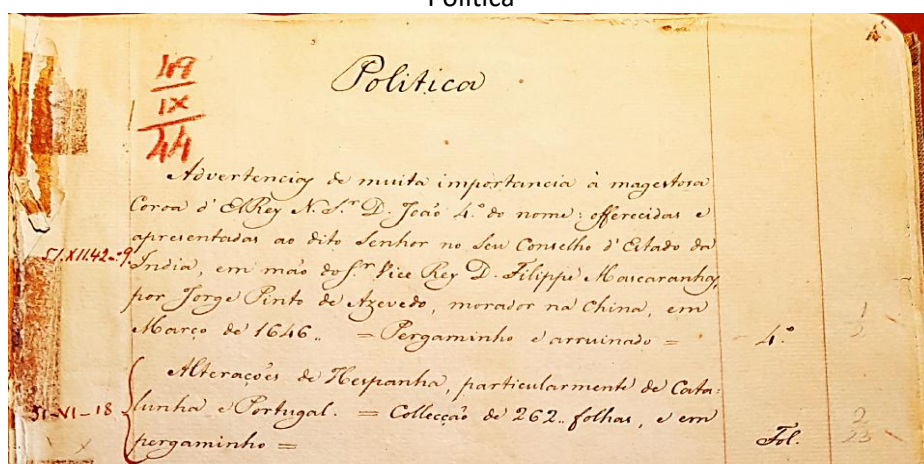 Política
49
IX
44
Politica
Advertencias de muita importancia à magestosa
Coroa d'ElRey N. S.r D. João 4.º do nome: offerecidas e
apresentadas ao dito Senhor no Seu Conselho d'Estado da
51.XII.42-9 India, em mão do S.r Vice Rey D. Filippe Mascaranhas,
por Jorge Pinto de Azevedo, morador na China, em
Março de 1646.. = Pergaminho e arruinado = 4.º 1
2
Alterações de Hespanha, particularmente de Cata-
51-VI-18 lunha e Portugal. = Collecção de 262.. folhas, e em 2
pergaminho = Fol. 23